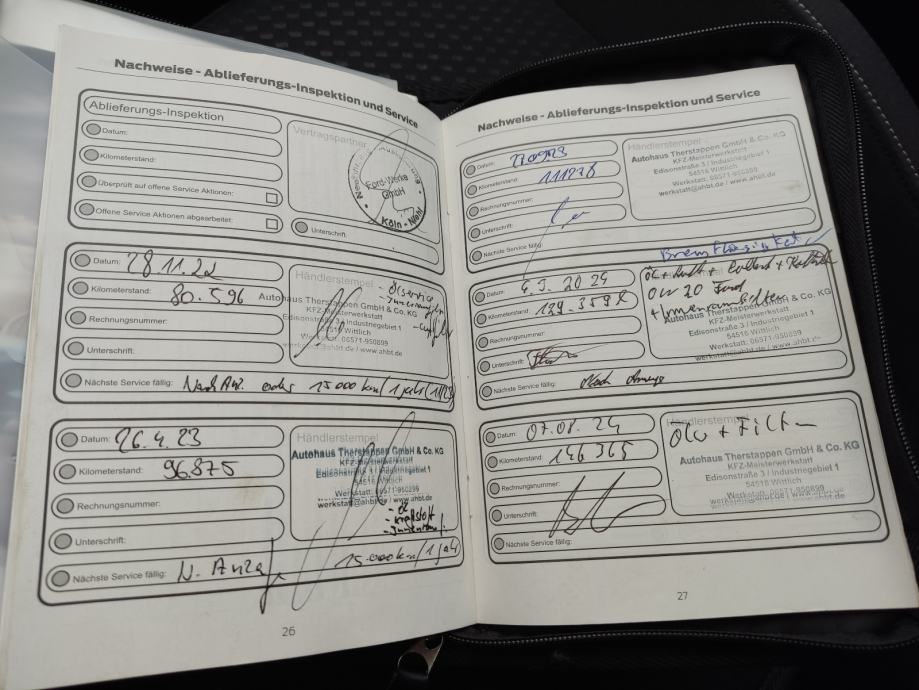 Nachweise - Ablieferungs-Inspektion und Service
Ablieferungs-Inspektion
Datum:
Kilometerstand:
Überprüft auf offene Service Aktionen:
Offene Service Aktionen abgearbeitet:
Vertragspartner
Ford-Werke
GmbH
Köln - Niehl
Unterschrift:
Datum: 28.11.22
Kilometerstand: 80.596
Rechnungsnummer:
Unterschrift:
Nächste Service fällig: Nach Anz. oder 15000 km/1 Jahr/11/23
Händlerstempel
- Ölservice
Autohaus Therstappen GmbH & Co. KG
KFZ-Meisterwerkstatt
Edisonstraße 3 / Industriegebiet 1
54516 Wittlich
Werkstatt: 06571-950899
werkstatt@ahbt.de / www.ahbt.de
Datum: 26.4.23
Kilometerstand: 96.875
Rechnungsnummer:
Unterschrift:
Nächste Service fällig: N. Anzeige 15.000km/1 Jahr
Händlerstempel
Autohaus Therstappen GmbH & Co. KG
KFZ-Meisterwerkstatt
Edisonstraße 3 / Industriegebiet 1
54516 Wittlich
Werkstatt: 06571-950899
werkstatt@ahbt.de / www.ahbt.de
- Öl
- Kraftstoff
- Innenraum
26
Nachweise - Ablieferungs-Inspektion und Service
Datum:
Kilometerstand: 111276
Rechnungsnummer:
Unterschrift:
Nächste Service fällig:
Händlerstempel
Autohaus Therstappen GmbH & Co. KG
KFZ-Meisterwerkstatt
Edisonstraße 3 / Industriegebiet 1
54516 Wittlich
Werkstatt: 06571-950899
werkstatt@ahbt.de / www.ahbt.de
Bremsflüssigkeit
Datum: 4.3.2024
Kilometerstand: 129.359
Rechnungsnummer:
Unterschrift:
Nächste Service fällig: Nach Anzeige
Öl + Luft +
0W20 Ford
+ Innenraumfilter
Autohaus Therstappen GmbH & Co. KG
KFZ-Meisterwerkstatt
Edisonstraße 3 / Industriegebiet 1
54516 Wittlich
Werkstatt: 06571-950899
werkstatt@ahbt.de / www.ahbt.de
Datum: 07.08.24
Kilometerstand: 146365
Rechnungsnummer:
Unterschrift:
Nächste Service fällig:
Händlerstempel
Autohaus Therstappen GmbH & Co. KG
KFZ-Meisterwerkstatt
Edisonstraße 3 / Industriegebiet 1
54516 Wittlich
Werkstatt: 06571-950899
werkstatt@ahbt.de / www.ahbt.de
27